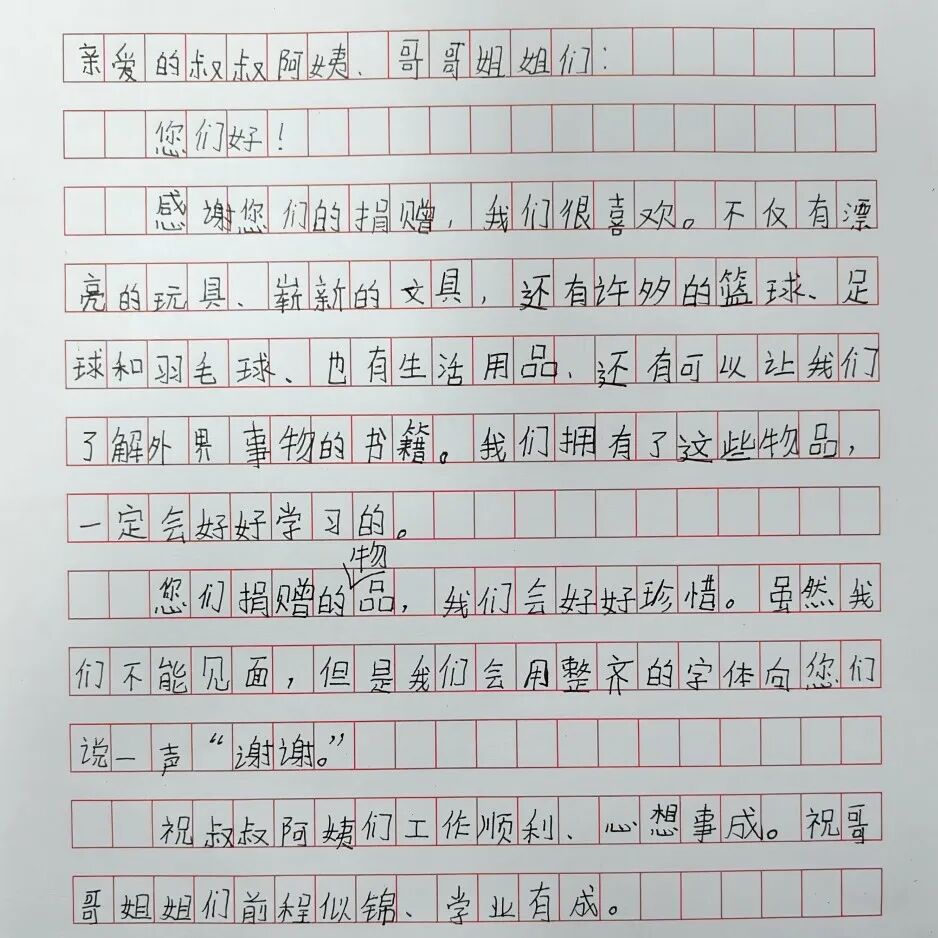 亲爱的叔叔阿姨、哥哥姐姐们：
您们好！
感谢您们的捐赠，我们很喜欢。不仅有漂
亮的玩具、崭新的文具，还有许多的篮球、足
球和羽毛球、也有生活用品、还有可以让我们
了解外界事物的书籍。我们拥有了这些物品，
一定会好好学习的。
您们捐赠的物品，我们会好好珍惜。虽然我
们不能见面，但是我们会用整齐的字体向您们
说一声“谢谢。”
祝叔叔阿姨们工作顺利、心想事成。祝哥
哥姐姐们前程似锦、学业有成。